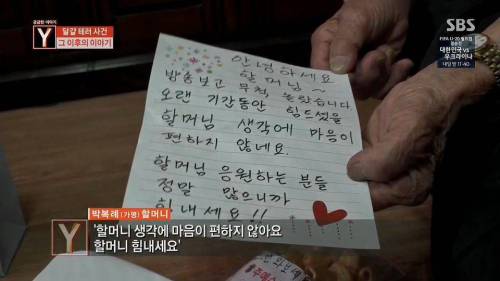 궁금한 이야기
Y
달걀 테러 사건
그 이후의 이야기
SBS
FIFA U-20 월드컵
결승전
대한민국 vs
우크라이나
내일 밤 11:40
안녕하세요
할머님~
방송보고 무척 놀랐습니다
오랜 기간동안 힘드셨을
할머님 생각에 마음이
편하지 않네요.
할머님 응원하는 분들
정말 많으니까
힘내세요!!
박복례(가명) 할머니
Y
'할머니 생각에 마음이 편하지 않아요
할머니 힘내세요'